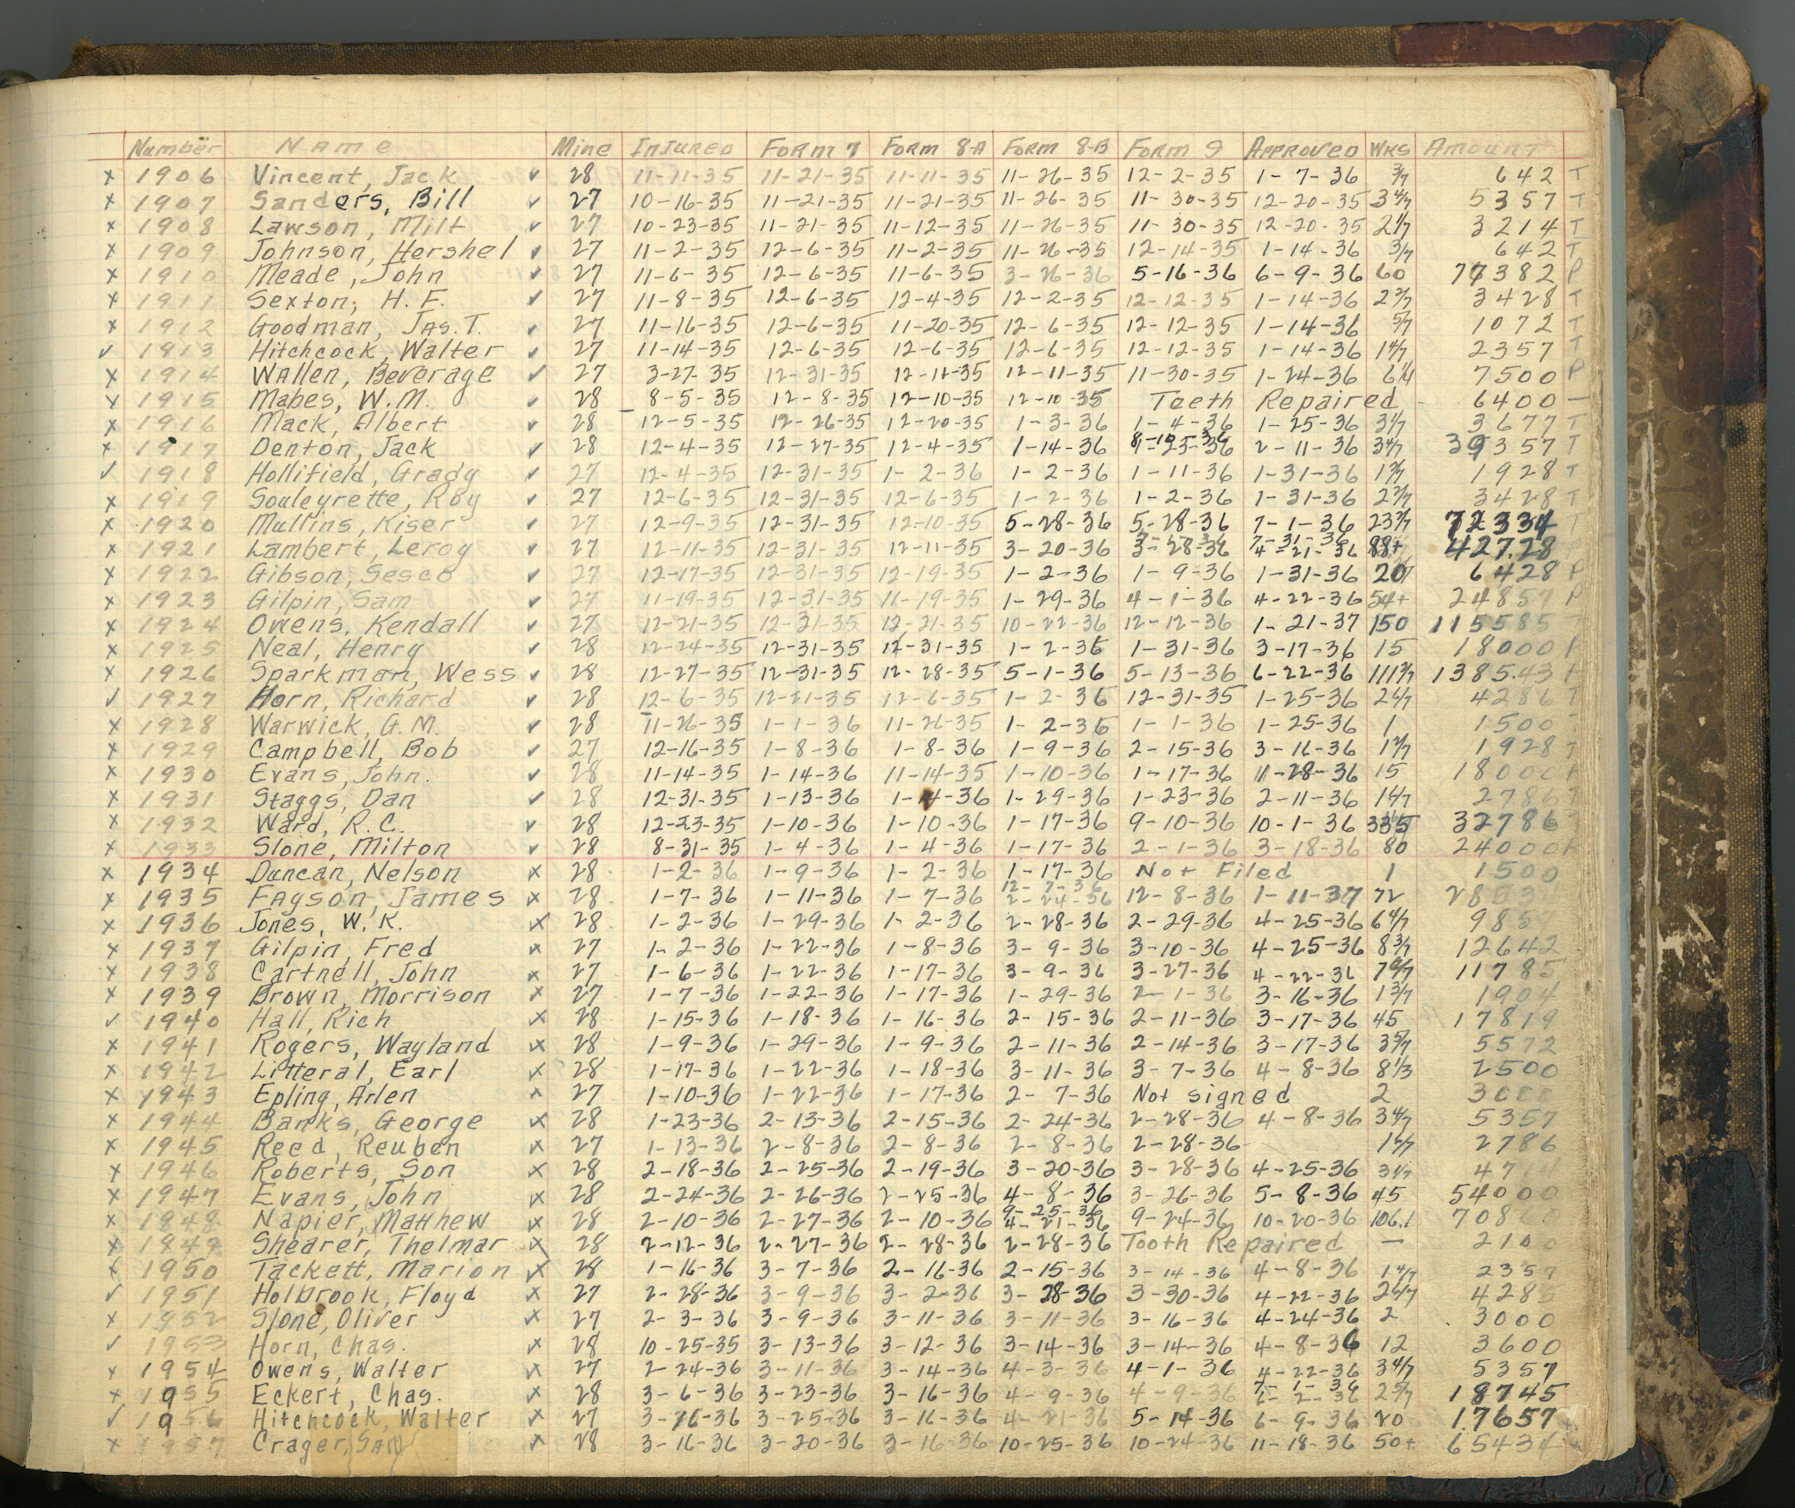 Number Name Mine Injured Form 7 Form 8-A Form 8-B Form 9 Approved Wks Amount
x 1906 Vincent, Jack ✓ 28 11-11-35 11-21-35 11-11-35 11-26-35 12-2-35 1-7-36 3/7 642 T
x 1907 Sanders, Bill ✓ 27 10-16-35 11-21-35 11-21-35 11-26-35 11-30-35 12-20-35 3 4/7 5357 T
x 1908 Lawson, Milt ✓ 27 10-23-35 11-21-35 11-12-35 11-26-35 11-30-35 12-20-35 2 1/7 3214 T
x 1909 Johnson, Hershel ✓ 27 11-2-35 12-6-35 11-2-35 11-26-35 12-14-35 1-14-36 3/7 642 T
x 1910 Meade, John ✓ 27 11-6-35 12-6-35 11-6-35 3-26-36 5-16-36 6-9-36 60 77382 P
x 1911 Sexton, H. F. ✓ 27 11-8-35 12-6-35 12-4-35 12-2-35 12-12-35 1-14-36 2 2/7 3428 T
x 1912 Goodman, Jas. T. ✓ 27 11-16-35 12-6-35 11-20-35 12-6-35 12-12-35 1-14-36 5/7 1072 T
✓ 1913 Hitchcock, Walter ✓ 27 11-14-35 12-6-35 12-6-35 12-6-35 12-12-35 1-14-36 1 4/7 2357 T
x 1914 Wallen, Beverage ✓ 27 3-27-35 12-31-35 12-11-35 12-11-35 11-30-35 1-24-36 6 1/4 7500 P
x 1915 Mabes, W. M. ✓ 28 8-5-35 12-8-35 12-10-35 12-10-35 Teeth Repaired 6400 —
x 1916 Mack, Albert ✓ 28 12-5-35 12-26-35 12-20-35 1-3-36 1-4-36 1-25-36 3 1/7 3677 T
x 1917 Denton, Jack ✓ 28 12-4-35 12-27-35 12-4-35 1-14-36 2-11-36 39357 T
✓ 1918 Hollifield, Grady ✓ 27 12-4-35 12-31-35 1-2-36 1-2-36 1-11-36 1-31-36 1 2/7 1928 T
x 1919 Souleyrette, Roy ✓ 27 12-6-35 12-31-35 12-6-35 1-2-36 1-2-36 1-31-36 2 2/7 3428 T
x 1920 Mullins, Kiser ✓ 27 12-9-35 12-31-35 12-10-35 5-28-36 5-28-36 7-1-36 72334 T
x 1921 Lambert, Leroy ✓ 27 12-11-35 12-31-35 12-11-35 3-20-36 3-28-36 4-21-36 42728
x 1922 Gibson, Sesco ✓ 27 12-17-35 12-31-35 12-19-35 1-2-36 1-9-36 1-31-36 20 6428 P
x 1923 Gilpin, Sam ✓ 27 11-19-35 12-31-35 11-19-35 1-29-36 4-1-36 4-22-36 54+ 24857 P
x 1924 Owens, Kendall ✓ 27 12-21-35 12-31-35 12-21-35 10-22-36 12-12-36 1-21-37 150 115585
x 1925 Neal, Henry ✓ 28 12-24-35 12-31-35 12-31-35 1-2-36 1-31-36 3-17-36 15 18000 P
x 1926 Sparkman, Wess ✓ 28 12-27-35 12-31-35 12-28-35 5-1-36 5-13-36 6-22-36 111 3/7 138543 P
✓ 1927 Horn, Richard ✓ 28 12-6-35 12-21-35 12-6-35 1-2-36 12-31-35 1-25-36 2 6/7 4286 T
x 1928 Warwick, G. M. ✓ 28 11-26-35 1-1-36 11-26-35 1-2-36 1-1-36 1-25-36 1 1500
x 1929 Campbell, Bob ✓ 27 12-16-35 1-8-36 1-8-36 1-9-36 2-15-36 3-16-36 1 2/7 1928 T
x 1930 Evans, John. ✓ 28 11-14-35 1-14-36 11-14-35 1-10-36 1-17-36 11-28-36 15 18000 P
x 1931 Staggs, Dan ✓ 28 12-31-35 1-13-36 1-4-36 1-29-36 1-23-36 2-11-36 1 6/7 2786 T
x 1932 Ward, R. C. ✓ 28 12-23-35 1-10-36 1-10-36 1-17-36 9-10-36 10-1-36 335 32786
x 1933 Slone, Milton ✓ 28 8-31-35 1-4-36 1-4-36 1-17-36 2-1-36 3-18-36 80 24000 P
x 1934 Duncan, Nelson x 28 1-2-36 1-9-36 1-2-36 1-17-36 Not Filed 1 1500
x 1935 Fayson, James x 28 1-7-36 1-11-36 1-7-36 12-7-36 2-24-36 12-8-36 1-11-37 72
x 1936 Jones, W. K. x 28 1-2-36 1-29-36 1-2-36 2-28-36 2-29-36 4-25-36 6 4/7 985
x 1937 Gilpin, Fred x 27 1-2-36 1-22-36 1-8-36 3-9-36 3-10-36 4-25-36 8 3/7 12642
x 1938 Cartnell, John x 27 1-6-36 1-22-36 1-17-36 3-9-36 3-27-36 4-22-36 7 6/7 11785
x 1939 Brown, Morrison x 27 1-7-36 1-22-36 1-17-36 1-29-36 2-1-36 3-16-36 1 3/7 1904
✓ 1940 Hall, Rich x 28 1-15-36 1-18-36 1-16-36 2-15-36 2-11-36 3-17-36 45 17819
x 1941 Rogers, Wayland x 28 1-9-36 1-29-36 1-9-36 2-11-36 2-14-36 3-17-36 3 5/7 5572
x 1942 Litteral, Earl x 28 1-17-36 1-22-36 1-18-36 3-11-36 3-7-36 4-8-36 8 1/3 2500
x 1943 Epling, Arlen x 27 1-10-36 1-22-36 1-17-36 2-7-36 Not signed 2 3000
x 1944 Banks, George x 28 1-23-36 2-13-36 2-15-36 2-24-36 2-28-36 4-8-36 3 4/7 5357
x 1945 Reed, Reuben x 27 1-13-36 2-8-36 2-8-36 2-8-36 2-28-36 1 6/7 2786
x 1946 Roberts, Son x 28 2-18-36 2-25-36 2-19-36 3-20-36 3-28-36 4-25-36 3 1/7 4714
x 1947 Evans, John x 28 2-24-36 2-26-36 2-25-36 4-8-36 3-26-36 5-8-36 45 54000
x 1948 Napier, Matthew x 28 2-10-36 2-27-36 2-10-36 9-25-36 4-21-36 9-24-36 10-20-36 106.1
x 1949 Shearer, Thelmar x 28 2-12-36 2-27-36 2-28-36 2-28-36 Tooth Repaired — 2100
x 1950 Tackett, Marion x 28 1-16-36 3-7-36 2-16-36 2-15-36 3-14-36 4-8-36 1 4/7 2357
✓ 1951 Holbrook, Floyd x 27 2-28-36 3-9-36 3-2-36 3-28-36 3-30-36 4-22-36 2 6/7 4285
x 1952 Slone, Oliver x 27 2-3-36 3-9-36 3-11-36 3-11-36 3-16-36 4-24-36 2 3000
✓ 1953 Horn, Chas. x 28 10-25-35 3-13-36 3-12-36 3-14-36 3-14-36 4-8-36 12 3600
x 1954 Owens, Walter x 27 2-24-36 3-11-36 3-14-36 4-3-36 4-1-36 4-22-36 3 4/7 5357
x 1955 Eckert, Chas. x 28 3-6-36 3-23-36 3-16-36 4-9-36 4-9-36 7-1-36 18745
✓ 1956 Hitchcock, Walter x 27 3-16-36 3-25-36 3-16-36 4-21-36 5-14-36 6-9-36 20 17657
x 1957 Crager, Sam x 28 3-16-36 3-20-36 3-16-36 10-25-36 10-24-36 11-18-36 50+ 65434